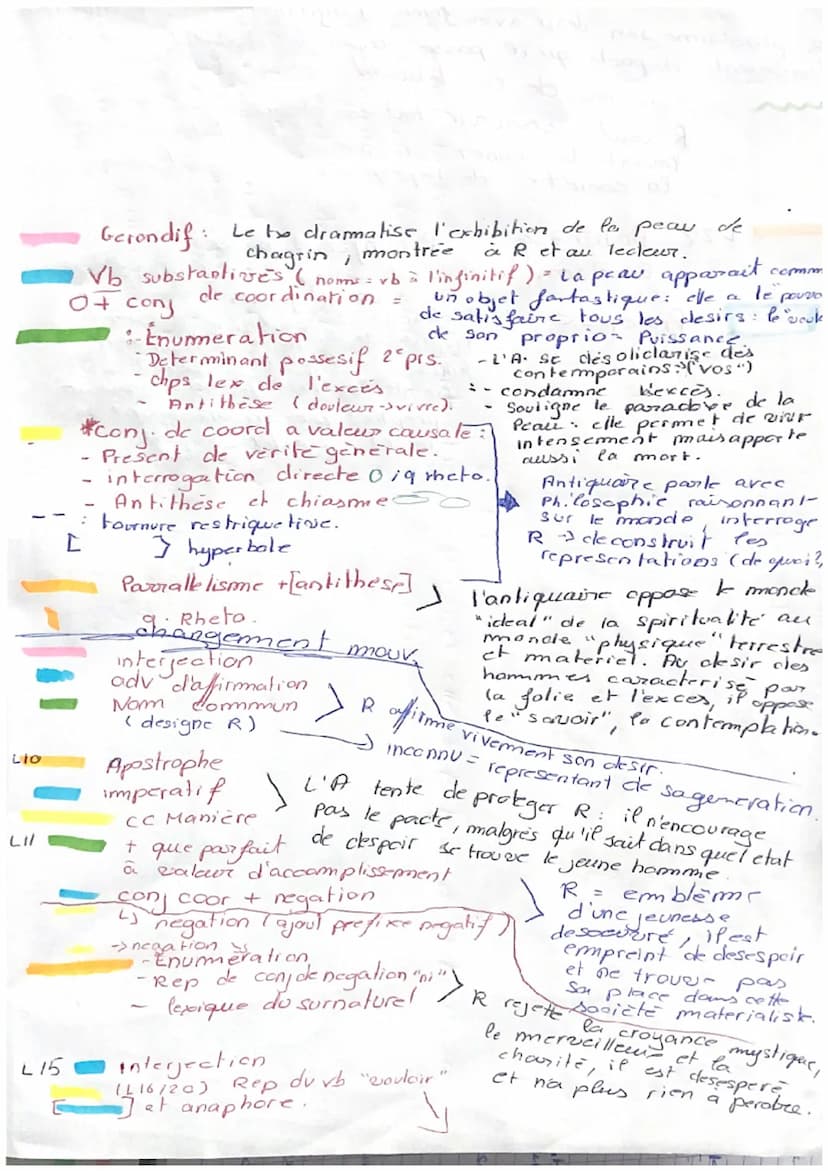 Gerondif : Le txo dramatise l'exhibition de la peau de
chagrin, montrée à R et au lecteur.
Vb substantivés ( noms = vb à l'infinitif ) = La peau apparait comm
O + conj de coordination = un objet fantastique : elle a le pouvo
de satisfaire tous les desirs : le "voulo
: - Énumeration de son proprio - Puissance.
- Determinant possesif 2e prs. - L'A. se désoliclarise des
contemporains : ("vos")
- chps lex de l'excés : - condamne l'excés.
- Antithèse ( douleur -> vivre). - Souligne le paradoxe de la
Peau : elle permet de vivre
*conj. de coord a valeur causale : intensement mais apporte
aussi la mort.
- Présent de vérité générale.
- interrogation directe O / q rheto. Antiquaire parle avec
- Antithèse et chiasme Philosophie raisonnant
-- : tournure restriquetive. sur le monde, interroge
[ } hyperbole R -> deconstruit les
representations (de quoi?)
Parrallelisme + [antithèse] l'antiquaire oppose le monde
q. Rheto. "ideal" de la spiritualité au
changement mouv. monde "physique" terrestre
interjection et materiel. Au desir des
adv d'affirmation hommes caracterisé par
Nom commun la folie et l'exces, il oppose
( designe R ) le "savoir", la contemplation.
R affirme vivement son desir.
inconnu = representant de sa generation.
L10 Apostrophe
imperatif L'A tente de proteger R : il n'encourage
cc Manière pas le pacte, malgrés qu'il sait dans quel etat
L11 + que parfait de despoir se trouve le jeune homme.
à valeur d'accomplissement
conj coor + negation R = emblème
↳ negation ( ajout prefixe negatif ) d'une jeunesse
desoeuvré, il est
-> negation empreint de desespoir
- Enumération et ne trouve pas
- Rep de conj de negation "ni" sa place dans cette
- lexique du surnaturel société materialist.
R rejette la croyance mystique,
le merveilleux et la
charité, il est desesperé
et n'a plus rien à perdre.
L15 interjection
(L16/20) Rep du vb "vouloir"
[ ] et anaphore.